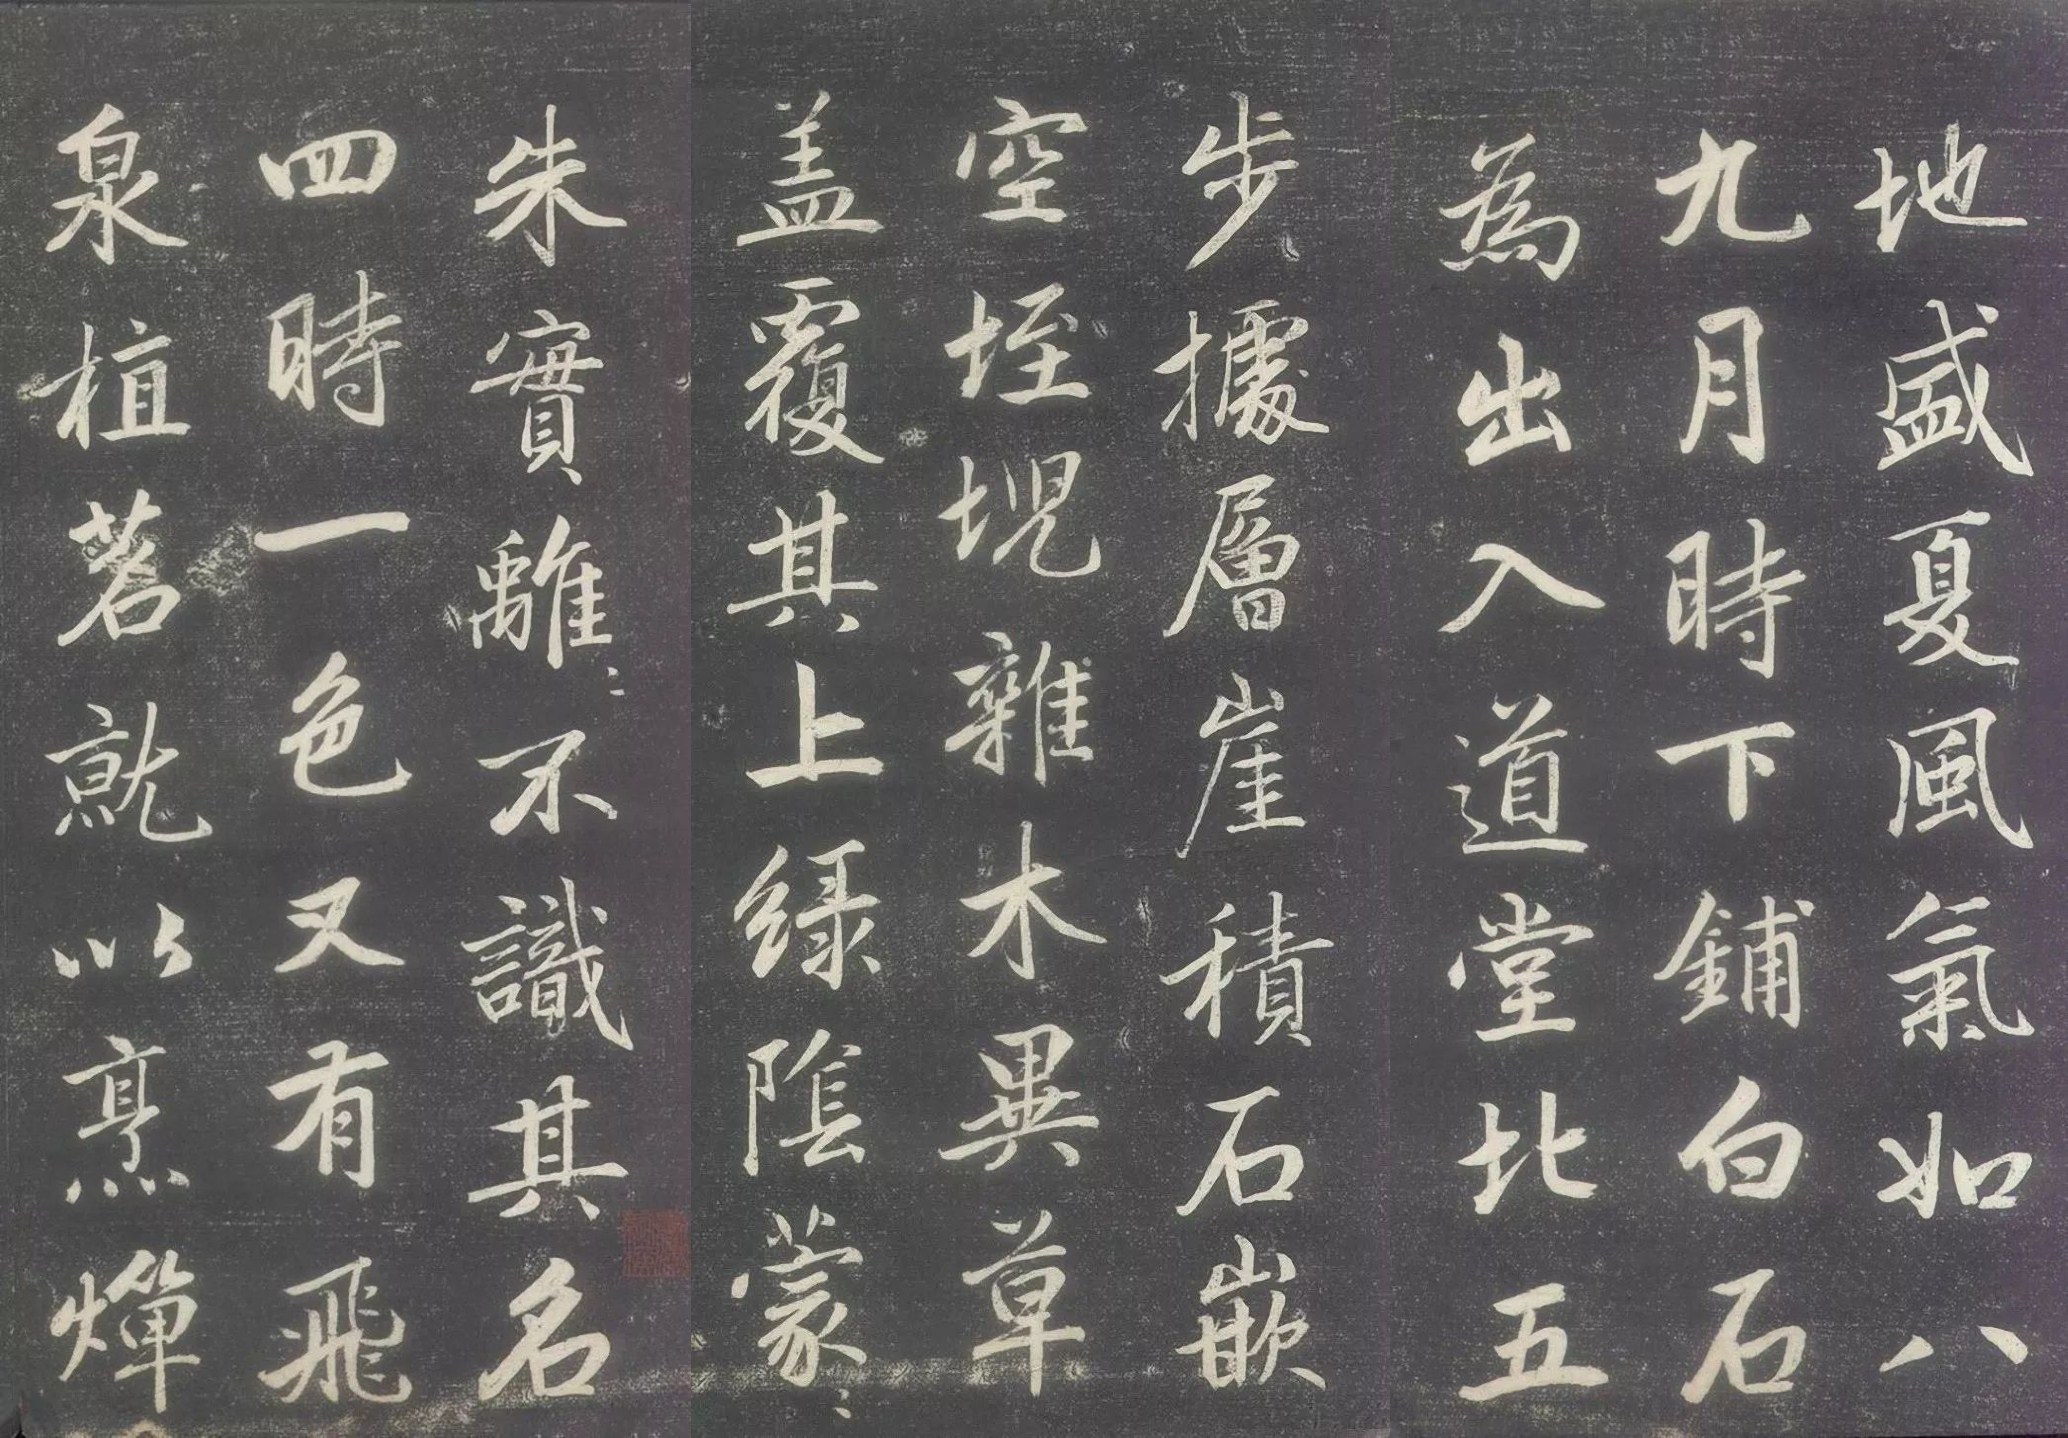 地盛夏風氣如八
九月時下鋪白石
為出入道堂北五
步據層崖積石嵌
空垤堄雜木異草
盖覆其上緑陰蒙〻
朱實離〻不識其名
四時一色又有飛
泉植茗就以烹燀